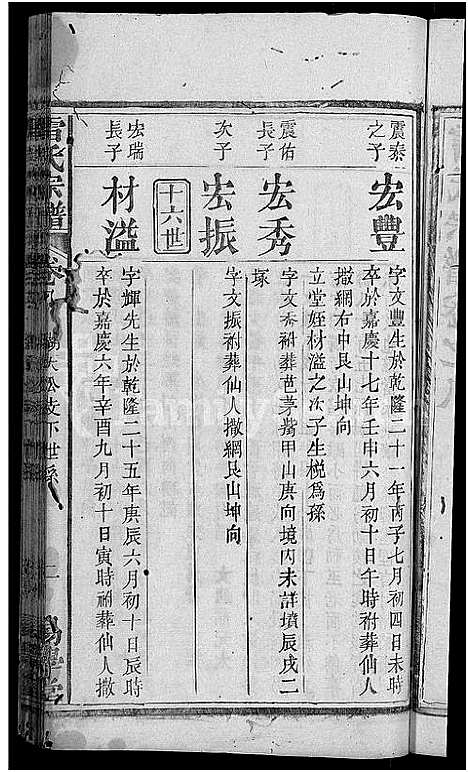 震泰之子
宏豐
字文豐生於乾隆二十一年丙子七月初四日未時
卒於嘉慶十七年壬申六月初十日午時祔葬仙人
撒網右申艮山坤向
立堂姪材溢之次子生棁爲孫
震佑長子
宏秀
字文秀祔葬芭茅觜甲山庚向境内未詳墳辰戌二
塚
次子
宏振
字文振祔葬仙人撒網艮山坤向
十六世
宏瑞長子
材溢
字輝先生於乾隆二十五年庚辰六月初十日辰時
卒於嘉慶六年辛酉九月初十日寅時祔葬仙人撒
雷氏宗譜
卷
公支下世系
二